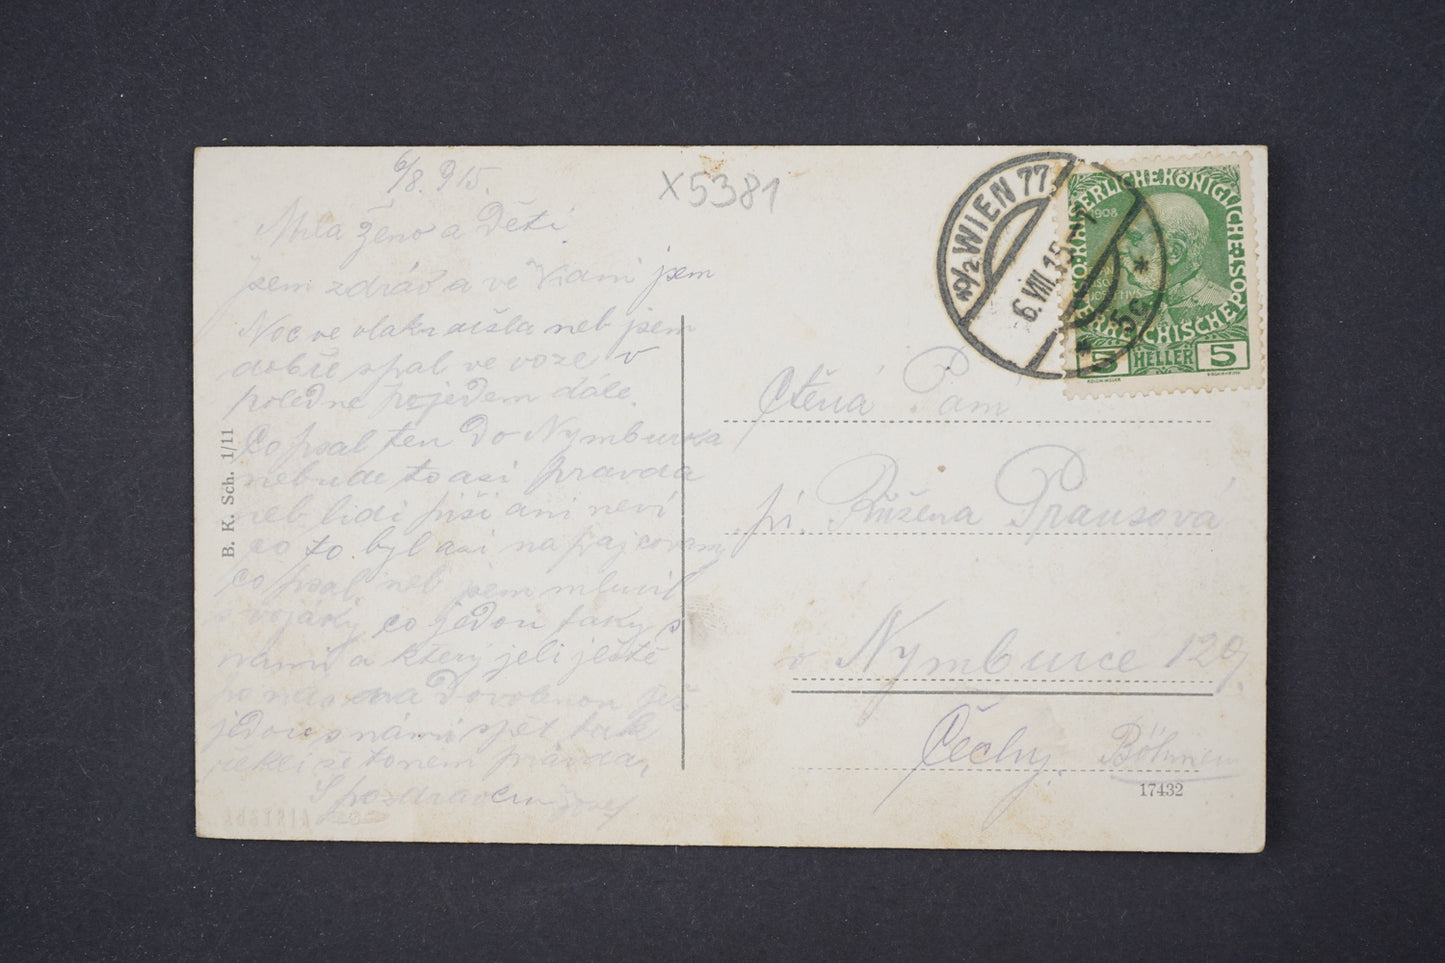 6/8. 915.
X5381
Mila Ženo a Děti
jsem zdráv a ve Vidni jsem
Noc ve vlaku ušla neb jsem
dobře spal ve voze v
poledne pojedem dále.
Co psal ten Do Nymburka
nebude to asi pravda
neb lidi píši ani neví
co to byl asi na
co psal neb jsem mluvil
s vojáky co jedou taky s
námi a který jeli ještě
po nás na Dovolenou též
jedou s námi zpět také
řekli že to není pravda,
S pozdravem Josef
B. K. Sch. 1/11
*9/2 WIEN 77
6.VIII.15
KAISERLICHE KÖNIGLICHE ÖSTERREICHISCHE POST
1908
5 HELLER 5
Ctěná Paní
pí. Růžena Prausová
v Nymburce 129.
Čechy. Böhmen
17432